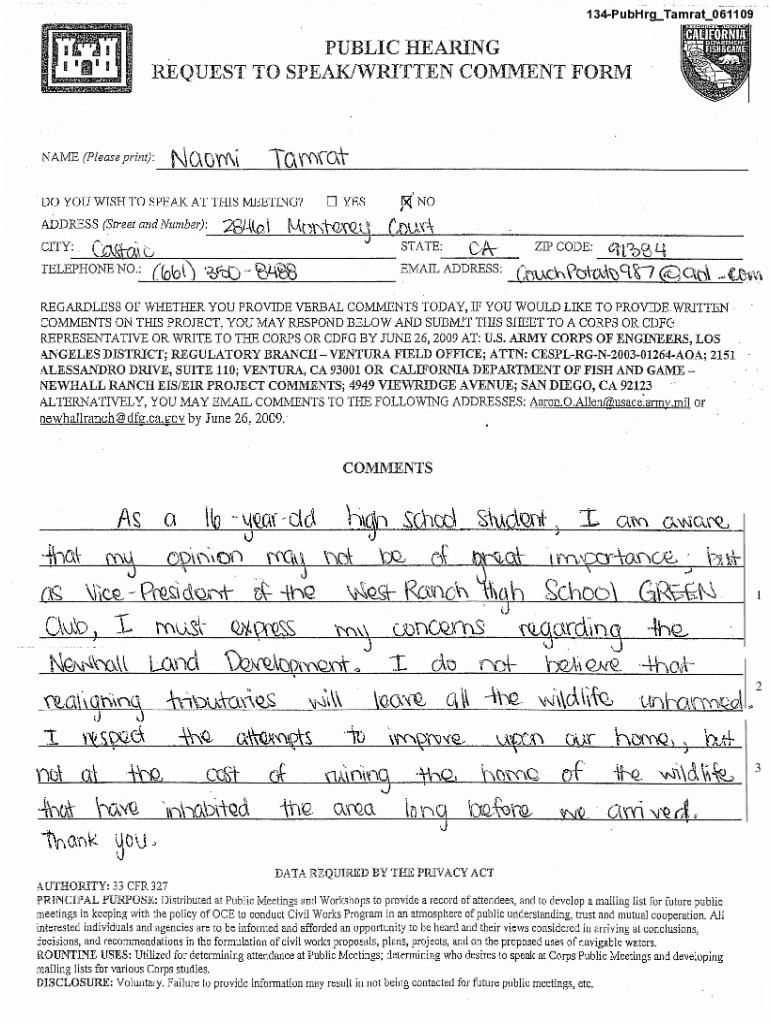 134-PubHrg_Tamrat_061109
CALIFORNIA
DEPARTMENT
FISH & GAME
PUBLIC HEARING
REQUEST TO SPEAK/WRITTEN COMMENT FORM
NAME (Please print): Naomi Tamrat
DO YOU WISH TO SPEAK AT THIS MEETING? ☐ YES ☒ NO
ADDRESS (Street and Number): 28461 Monterey Court
CITY: Castaic STATE: CA ZIP CODE: 91384
TELEPHONE NO.: (661) 350-8488 EMAIL ADDRESS: CouchPotato987@aol.com
REGARDLESS OF WHETHER YOU PROVIDE VERBAL COMMENTS TODAY, IF YOU WOULD LIKE TO PROVIDE WRITTEN
COMMENTS ON THIS PROJECT, YOU MAY RESPOND BELOW AND SUBMIT THIS SHEET TO A CORPS OR CDFG
REPRESENTATIVE OR WRITE TO THE CORPS OR CDFG BY JUNE 26, 2009 AT: U.S. ARMY CORPS OF ENGINEERS, LOS
ANGELES DISTRICT; REGULATORY BRANCH – VENTURA FIELD OFFICE; ATTN: CESPL-RG-N-2003-01264-AOA; 2151
ALESSANDRO DRIVE, SUITE 110; VENTURA, CA 93001 OR CALIFORNIA DEPARTMENT OF FISH AND GAME –
NEWHALL RANCH EIS/EIR PROJECT COMMENTS; 4949 VIEWRIDGE AVENUE; SAN DIEGO, CA 92123
ALTERNATIVELY, YOU MAY EMAIL COMMENTS TO THE FOLLOWING ADDRESSES: Aaron.O.Allen@usace.army.mil or
newhallranch@dfg.ca.gov by June 26, 2009.
COMMENTS
As a 16-year-old high school student, I am aware
that my opinion may not be of great importance; but
as Vice-President of the West Ranch High School GREEN 1
Club, I must express my concerns regarding the
Newhall Land Development. I do not believe that
realigning tributaries will leave all the wildlife unharmed. 2
I respect the attempts to improve upon our home, but
not at the cost of ruining the home of the wildlife 3
that have inhabited the area long before we arrived.
Thank you.
DATA REQUIRED BY THE PRIVACY ACT
AUTHORITY: 33 CFR 327
PRINCIPAL PURPOSE: Distributed at Public Meetings and Workshops to provide a record of attendees, and to develop a mailing list for future public
meetings in keeping with the policy of OCE to conduct Civil Works Program in an atmosphere of public understanding, trust and mutual cooperation. All
interested individuals and agencies are to be informed and afforded an opportunity to be heard and their views considered in arriving at conclusions,
decisions, and recommendations in the formulation of civil works proposals, plans, projects, and on the proposed uses of navigable waters.
ROUNTINE USES: Utilized for determining attendance at Public Meetings; determining who desires to speak at Corps Public Meetings and developing
mailing lists for various Corps studies.
DISCLOSURE: Voluntary. Failure to provide information may result in not being contacted for future public meetings, etc.